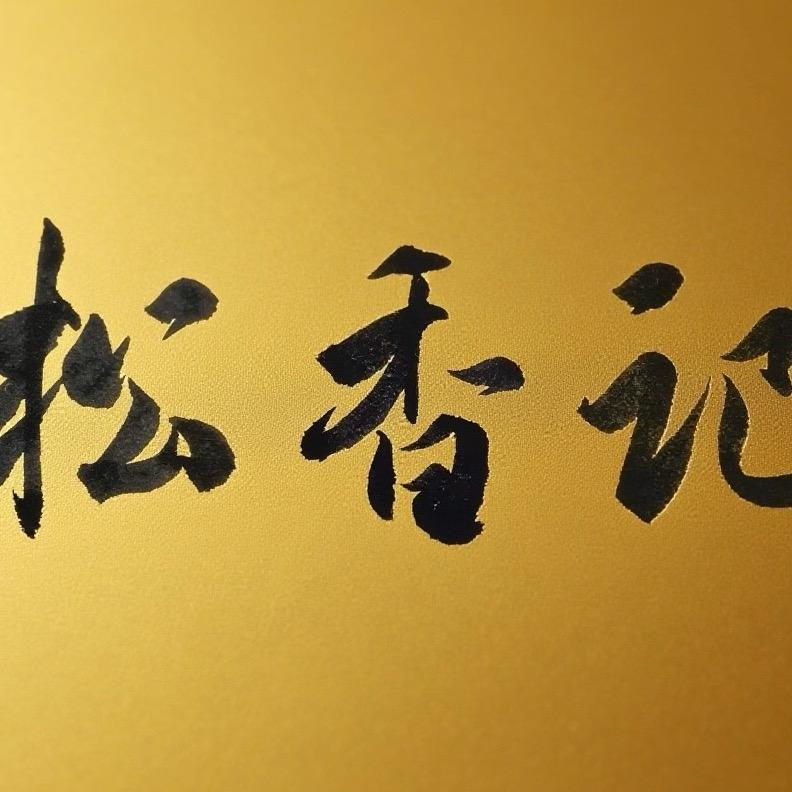 松香记